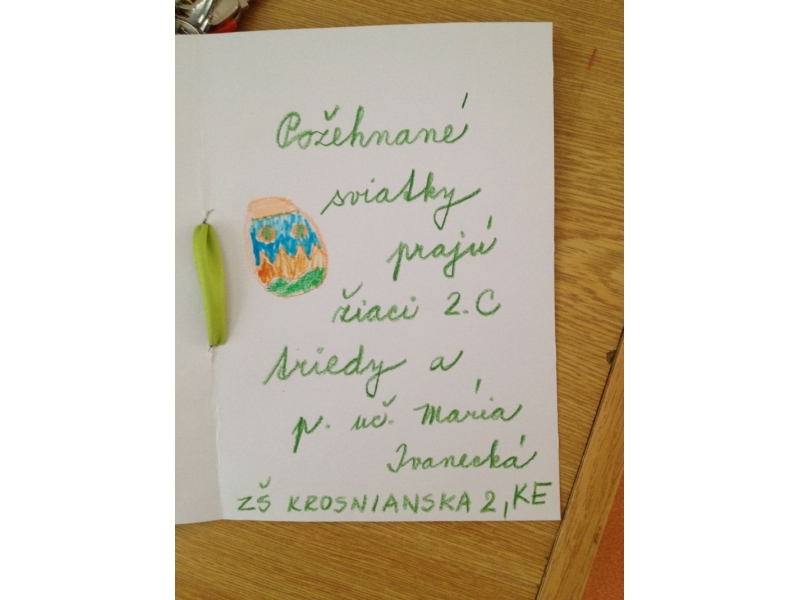 Požehnané
sviatky
prajú
žiaci 2. C
triedy a
p. uč. Mária
Ivanecká
ZŠ KROSNIANSKA 2, KE